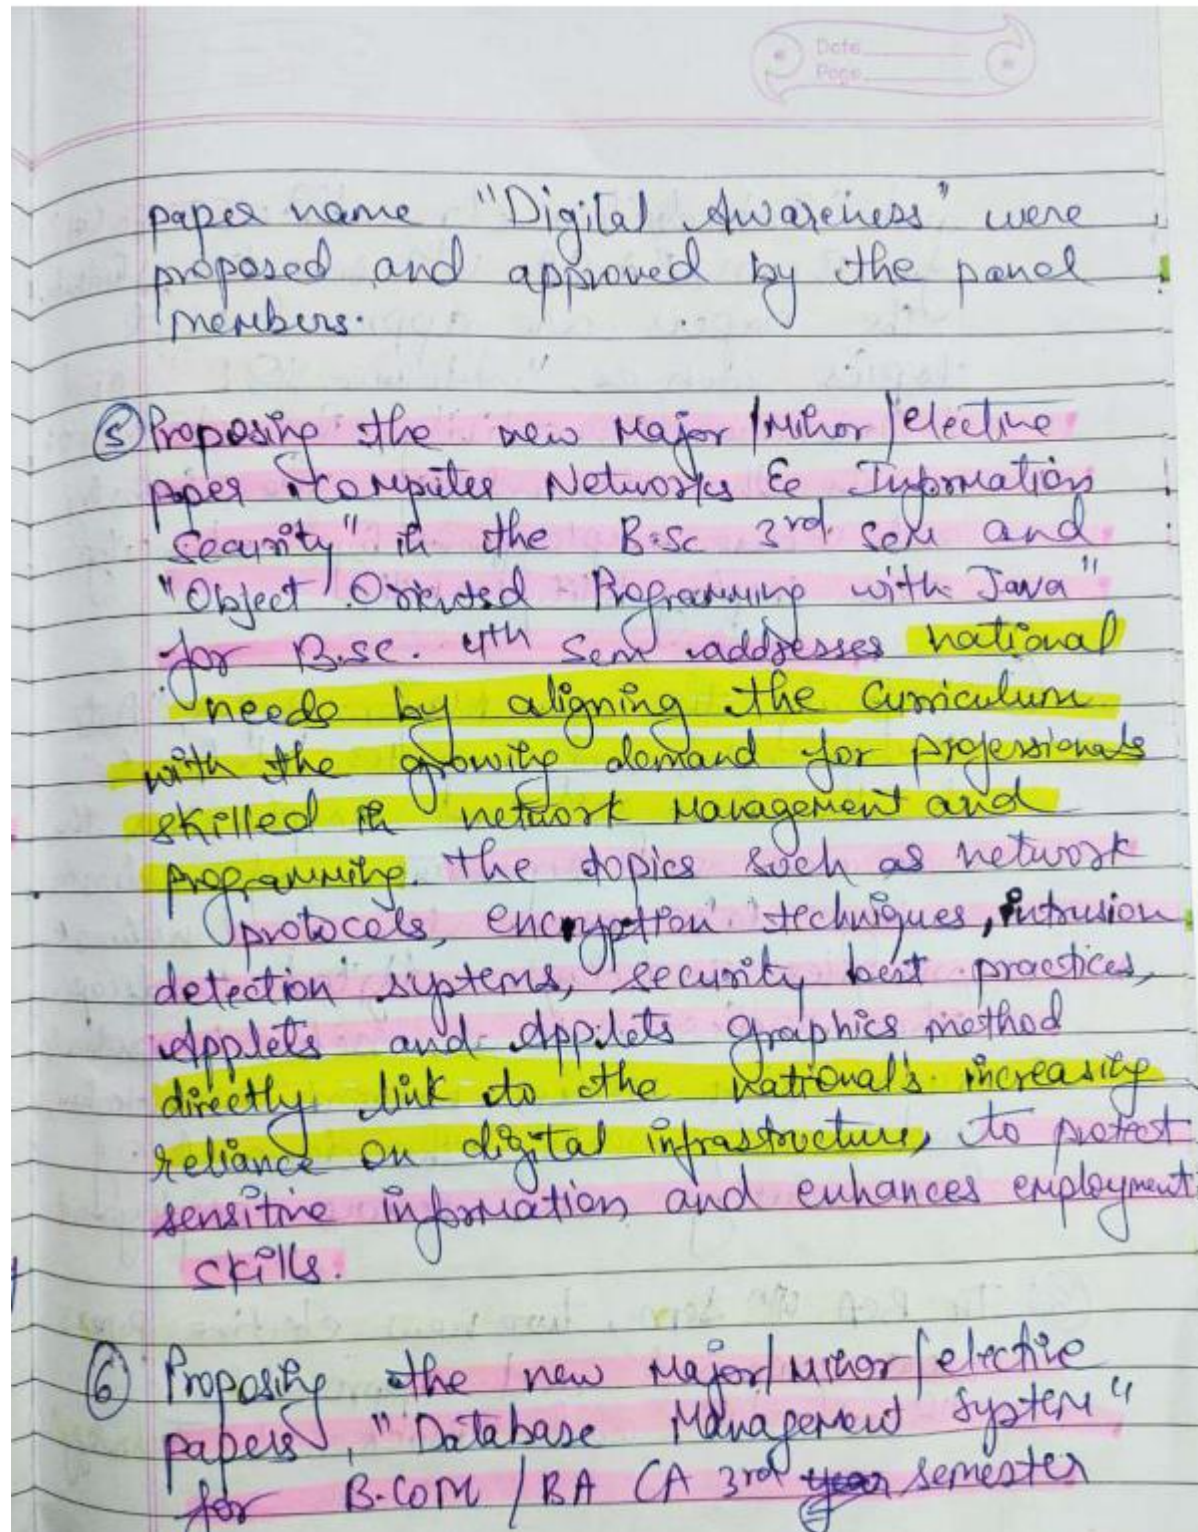 Date
Page
paper name "Digital Awareness" were
proposed and approved by the panel
members.
(5) Proposing the new Major/Minor/elective
paper "Computer Networks & Information
Security" in the B.Sc 3rd sem and
"Object Oriented Programming with Java"
for B.sc. 4th Sem addresses national
needs by aligning the curriculum
with the growing demand for professionals
skilled in network management and
programming. The topics such as network
protocols, encryption techniques, intrusion
detection systems, security best practices,
Applets and Applets graphics method
directly link to the national's increasing
reliance on digital infrastructure, to protect
sensitive information and enhances employment
skills.
(6) Proposing the new Major/Minor/elective
papers, "Database Management System"
for B.COM / BA CA 3rd semester